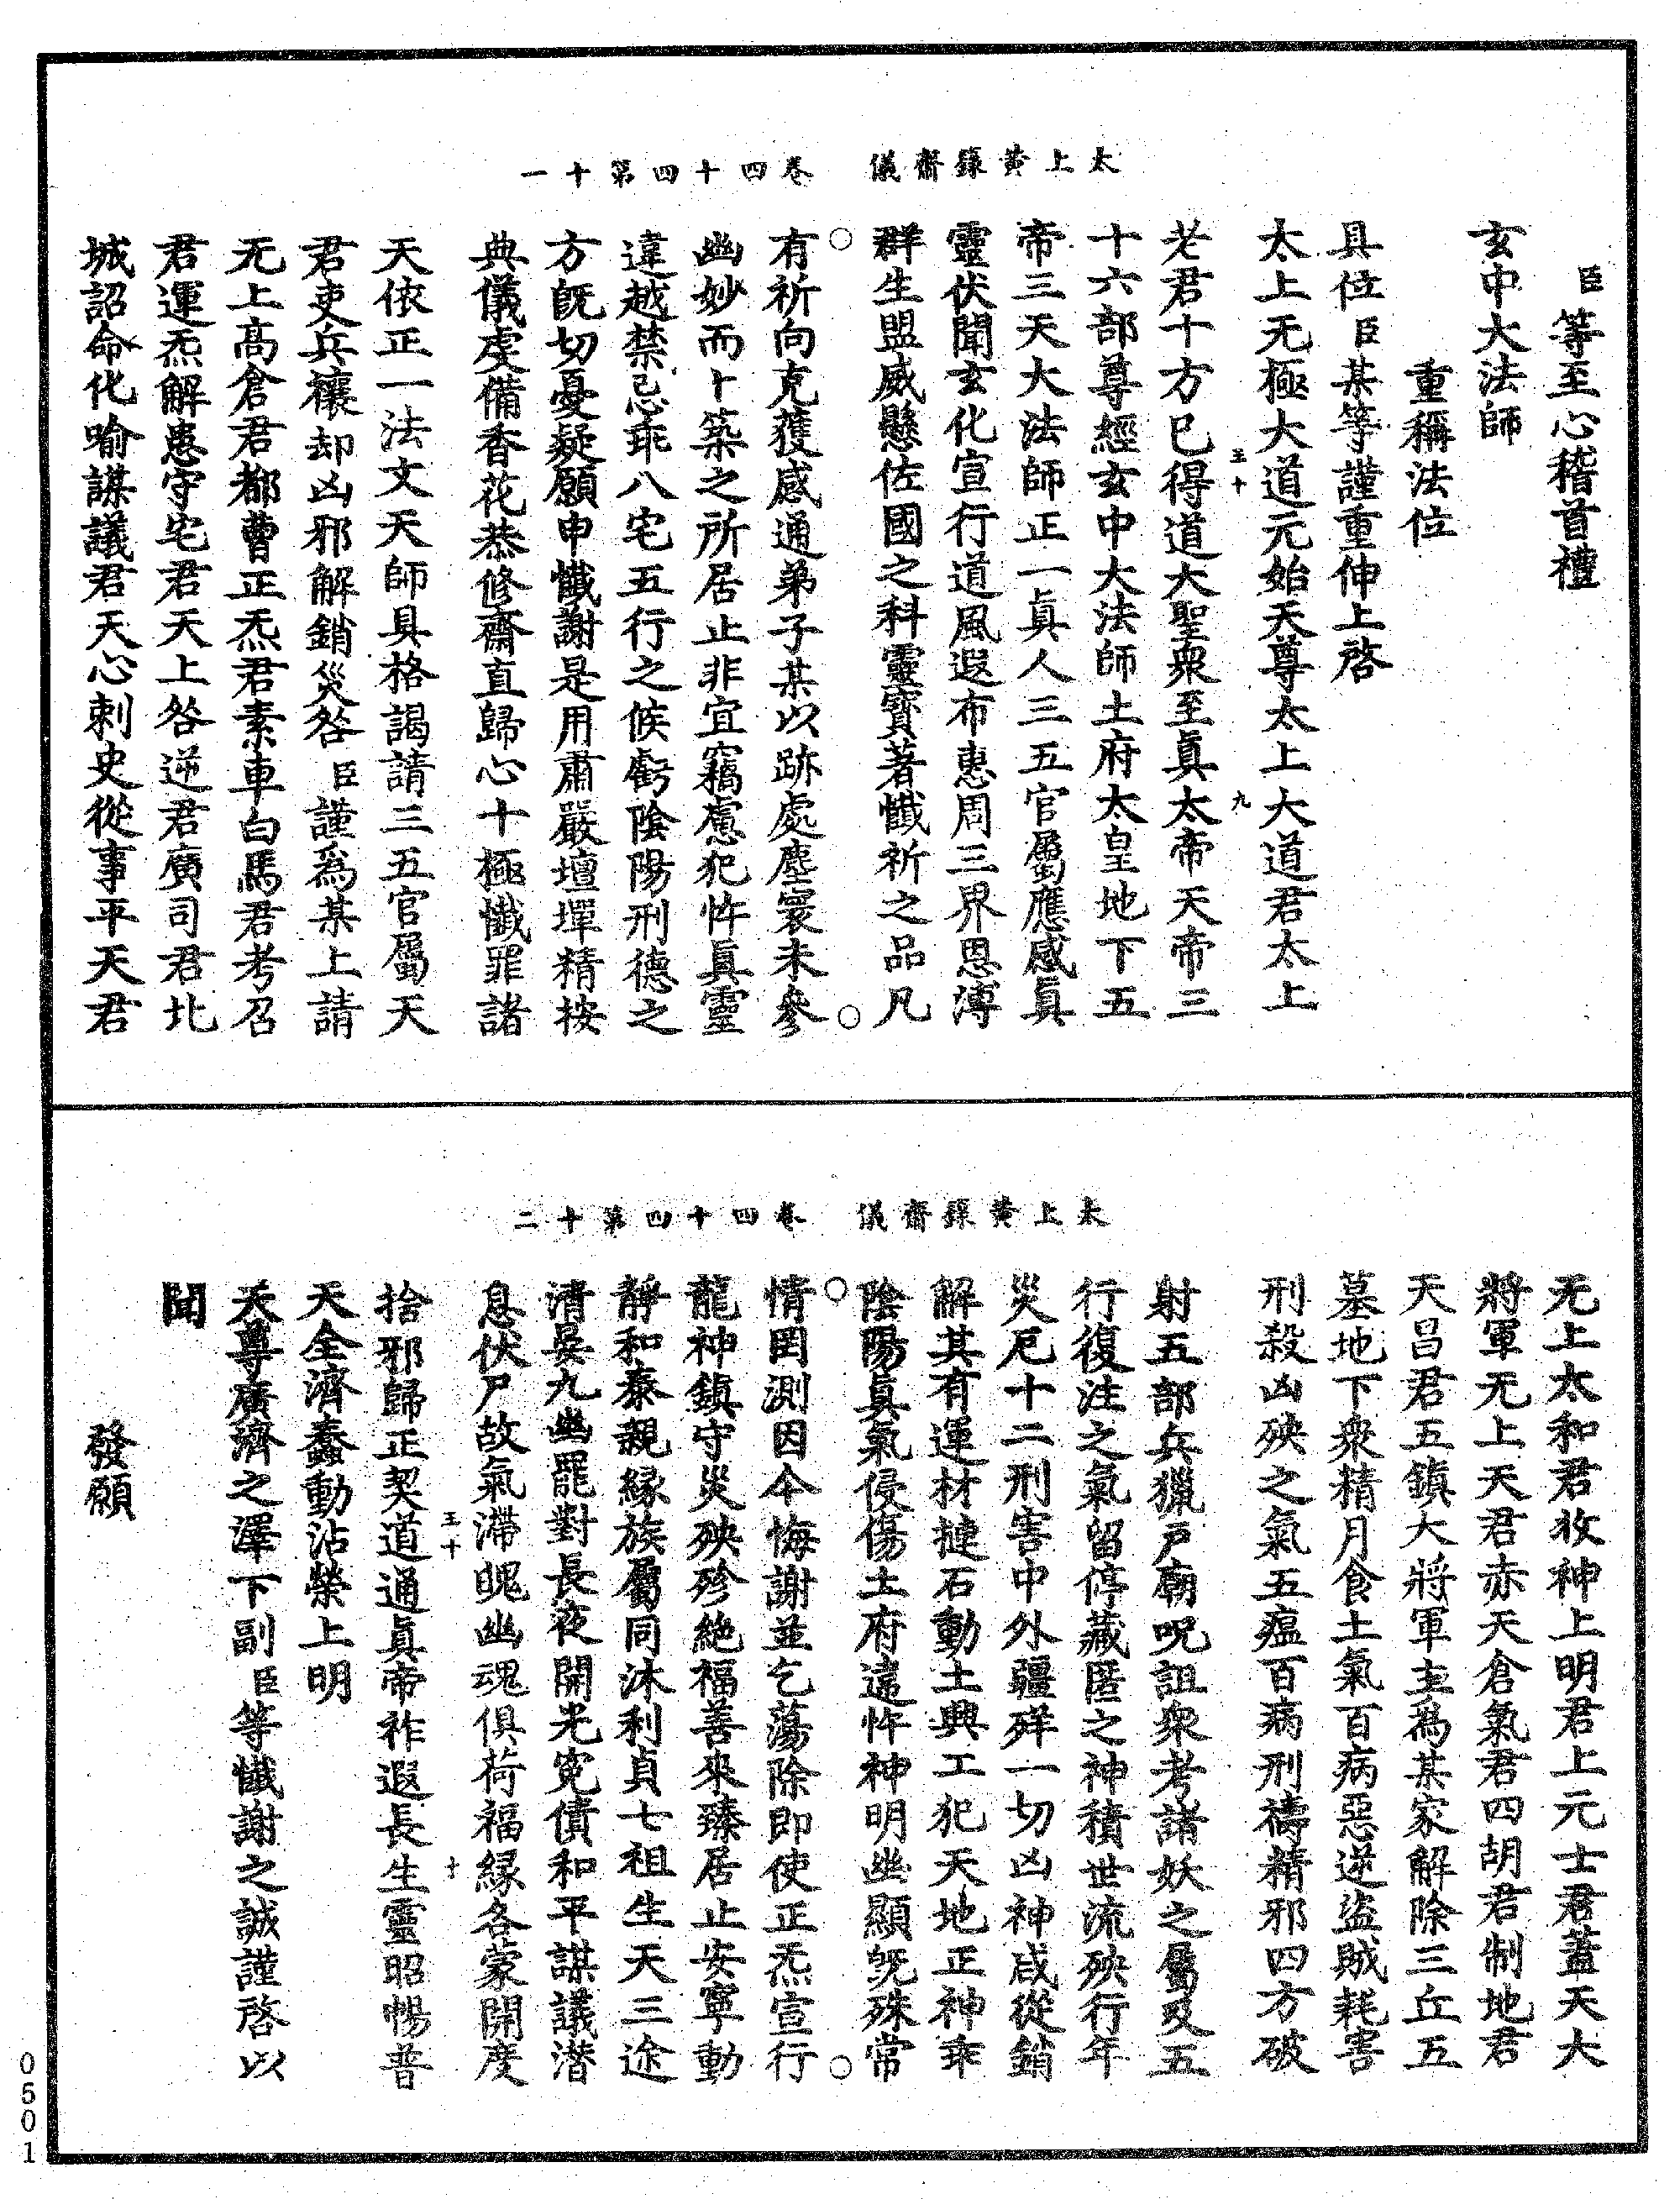 太上黃籙齋儀　卷四十四第十一
臣等至心稽首禮
玄中大法師
重稱法位
具位臣某等謹重伸上啓
太上无極大道元始天尊太上大道君太上
老君十方已得道大聖衆至眞太帝天帝三
十六部尊經玄中大法師土府太皇地下五
帝三天大法師正一眞人三五官屬應感眞
靈伏聞玄化宣行道風遐布惠周三界恩溥
群生盟威懸佐國之科靈寶著懺祈之品凡
有祈向克獲感通弟子某以跡處塵寰未參
幽妙而卜築之所居止非宜竊慮犯忤眞靈
違越禁忌乖八宅五行之候虧陰陽刑德之
方旣切憂疑願申懺謝是用肅嚴壇墠精按
典儀虔備香花恭修齋直歸心十極懺罪諸
天依正一法文天師具格謁請三五官屬天
君吏兵禳却凶邪解銷災咎臣謹爲某上請
无上高倉君都曹正炁君素車白馬君考召
君運炁解患守宅君天上咎逆君廣司君北
城詔命化喻謀議君天心刺史從事平天君
玉十
九
太上黃籙齋儀　卷四十四第十二
无上太和君收神上明君上元士君蓋天大
將軍无上天君赤天倉氣君四胡君制地君
天昌君五鎮大將軍主爲某家解除三丘五
墓地下衆精月食土氣百病惡逆盜賊耗害
刑殺凶殃之氣五瘟百病刑禱精邪四方破
射五部兵獵尸廟呪詛衆考諸妖之屬及五
行復注之氣留停藏匿之神積世流殃行年
災厄十二刑害中外疆殍一切凶神咸從銷
解其有運材揵石動土興工犯天地正神乖
陰陽眞氣侵傷土府違忤神明幽顯旣殊常
情罔測因今悔謝並乞蕩除即使正炁宣行
龍神鎮守災殃殄絶福善來臻居止安寧動
靜和泰親縁族屬同沐利貞七祖生天三途
清晏九幽罷對長夜開光寃債和平謀議潜
息伏尸故氣滯魄幽魂俱荷福縁各蒙開度
捨邪歸正契道通眞帝祚遐長生靈昭暢普
天全濟蠢動沾榮上明
天尊廣濟之澤下副臣等懺謝之誠謹啓以
聞
發願
玉十
十
0601